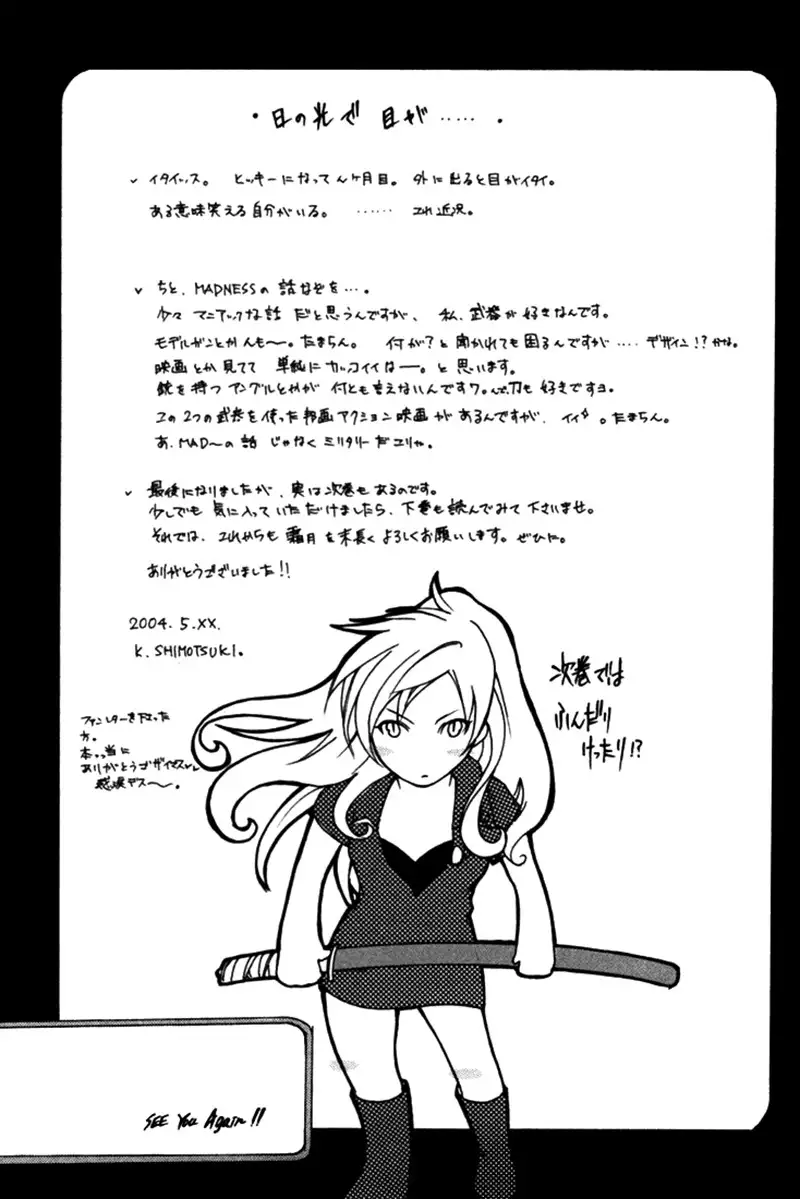 ・日の光で 目が……。
✓ イタイッス。 ヒッキーになってんヶ月目。 外に出ると目がイタイ。
ある意味笑える自分がいる。 …… これ近況。
✓ ちと、MADNESSの話などを…。
少々マニアックな話だと思うんですが、私、武器が好きなんです。
モデルガンとかんも〜。たまらん。 何が?と聞かれても困るんですが…‥ デザイン!?かな。
映画とか見てて 単純にカッコイイは〜。と思います。
銃を持つアングルとかが 何とも言えないんですワ。んで刀も好きですヨ。
この2つの武器を使った邦画アクション映画があるんですが、イイ。たまらん。
あ、MAD〜の話じゃなくミリタリーだコリャ。
✓ 最後になりましたが、実は次巻もあるのです。
少しでも気に入っていただけましたら、下巻も読んでみて下さいませ。
それでは、これからも霜月を末長くよろしくお願いします。ぜひに。
ありがとうございました!!
2004.5.XX.
K.SHIMOTSUKI.
次巻では
ふんだり
けったり!?
ファンレターを下さった
方。
本っ当に
ありがとうゴザイマス
感涙デス〜。
SEE YOU Again!!